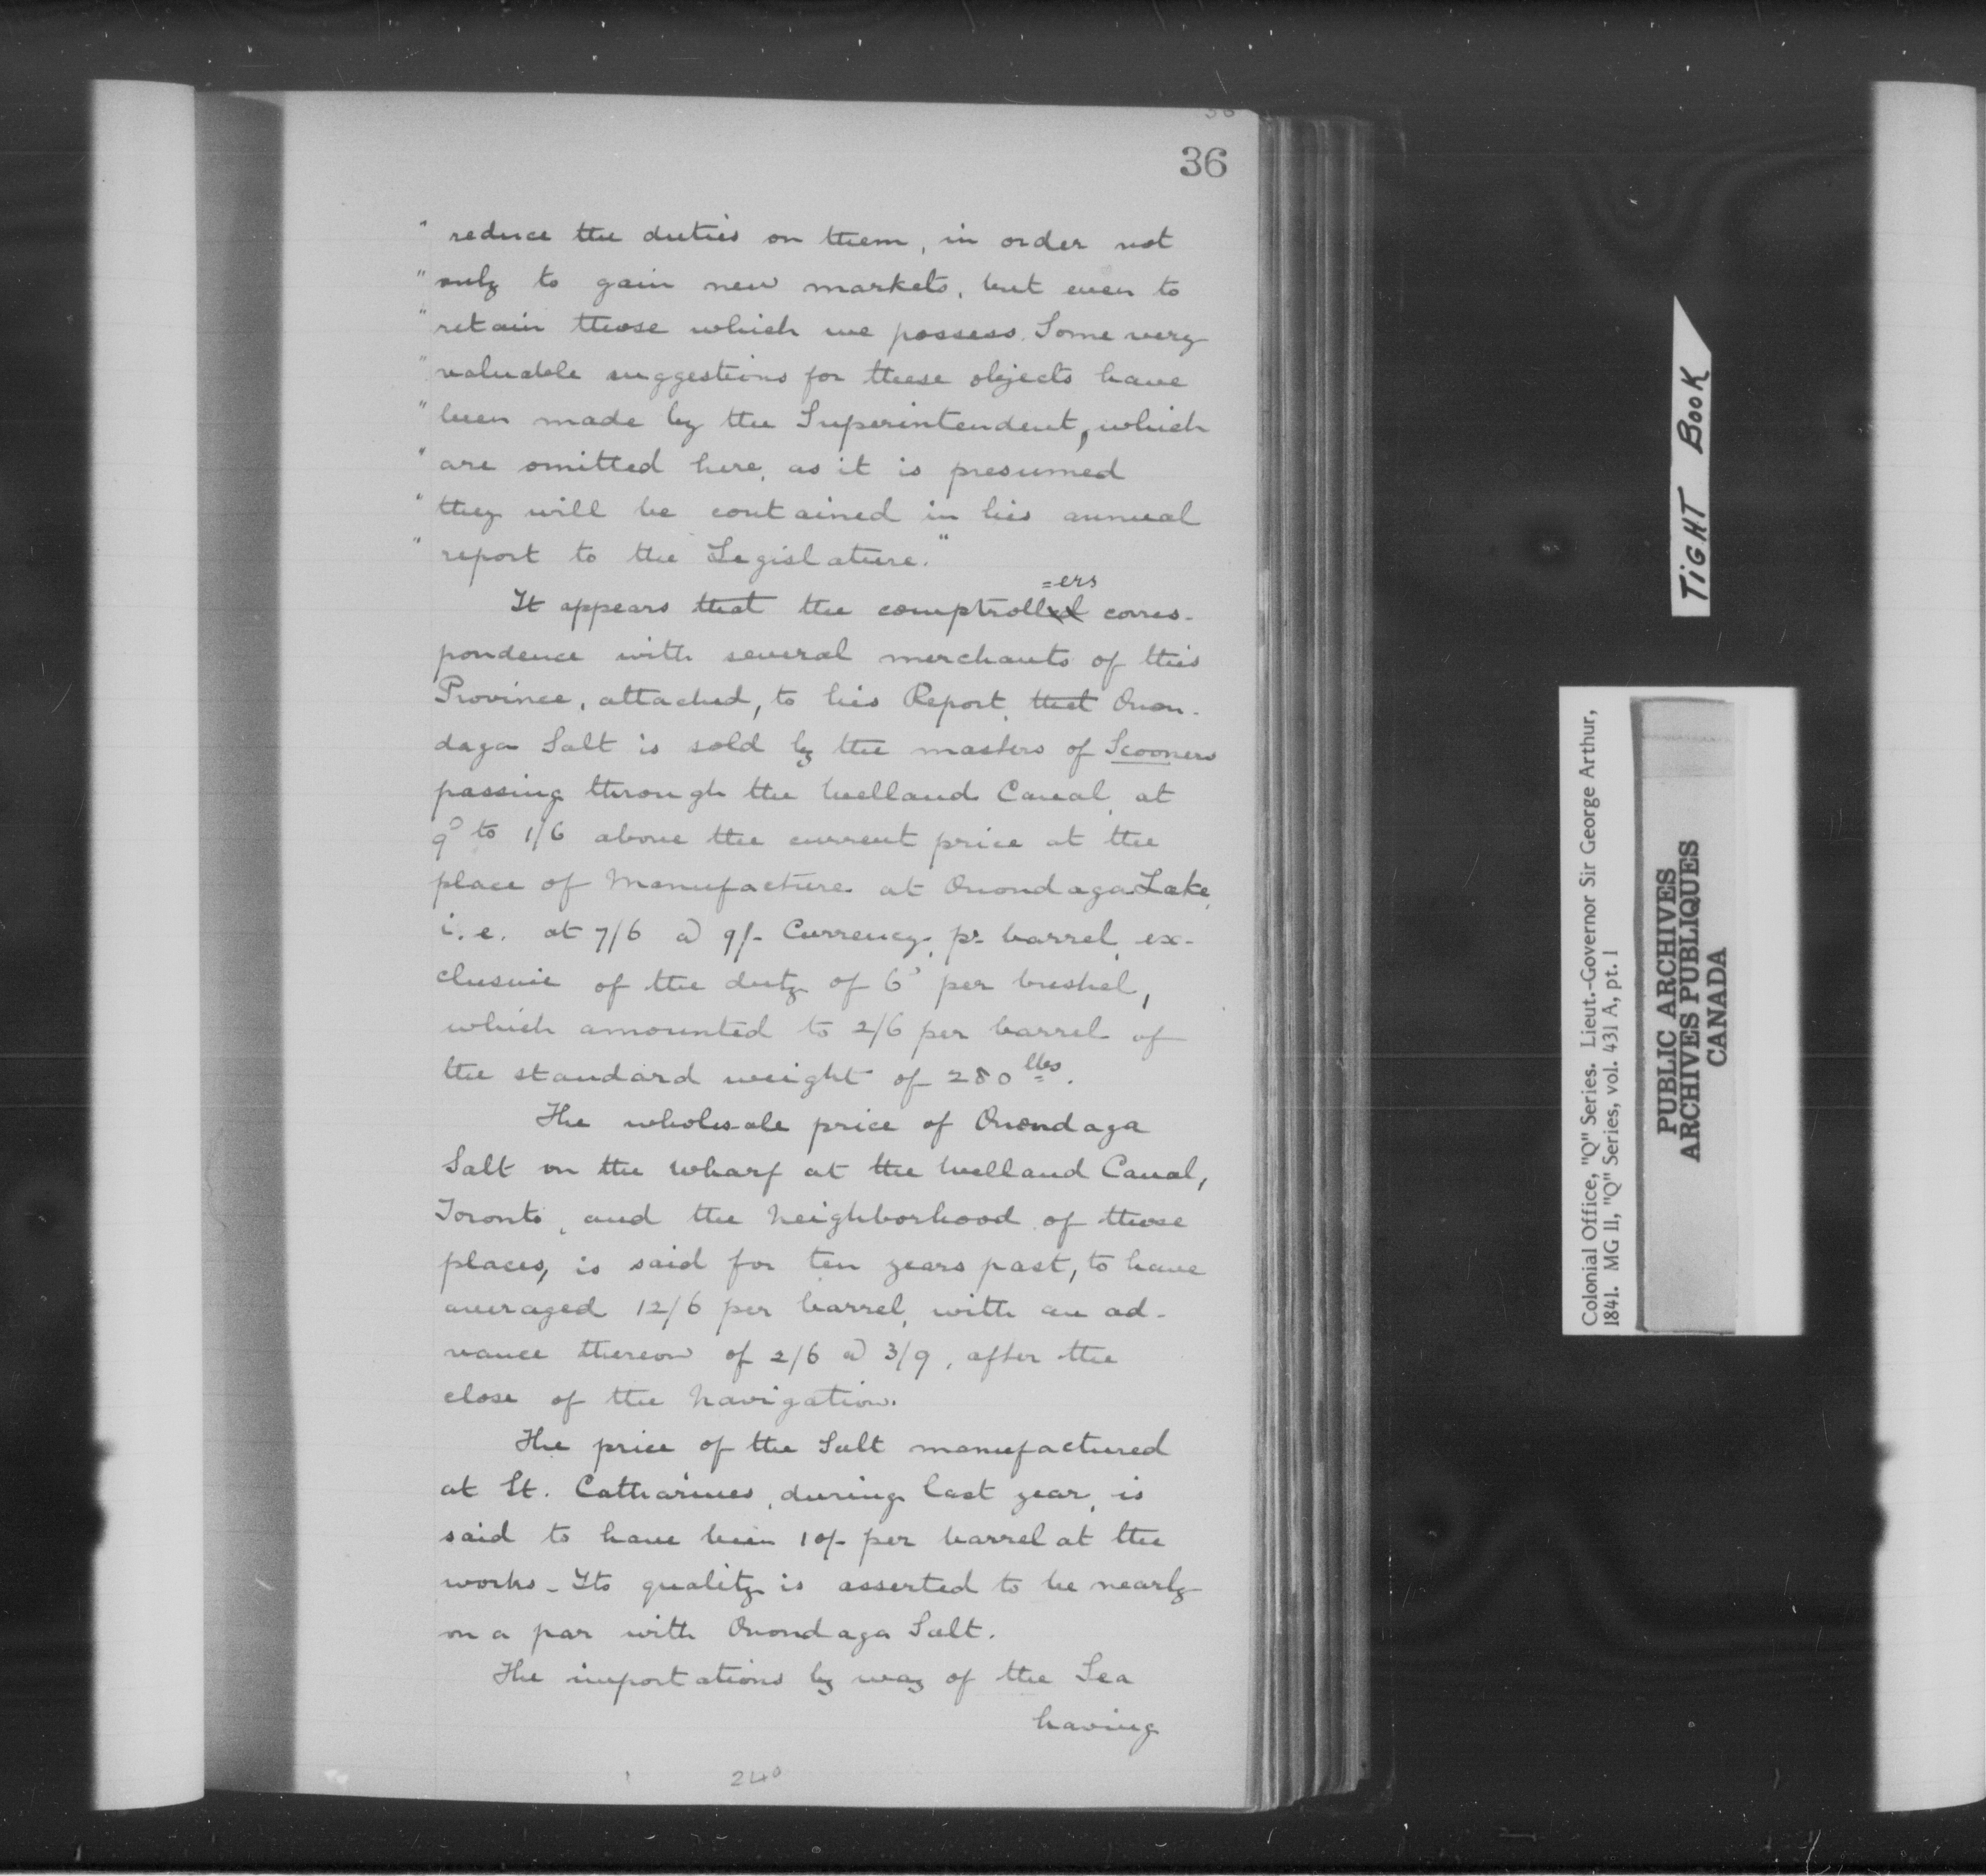 36
" reduce the duties on them, in order not
" only to gain new markets, but even to
" retain those which we possess. Some very
" valuable suggestions for these objects have
" been made by the Superintendent, which
" are omitted here, as it is presumed
" they will be contained in his annual
" report to the Legislature."
=ers
It appears that the comptrolled corres-
pondence with several merchants of this
Province, attached, to his Report, that Onon-
daga Salt is sold by the masters of Scooners
passing through the Welland Canal, at
9d to 1/6 above the current price at the
place of Manufacture at Onondaga Lake,
i.e. at 7/6 @ 9/- Currency, pr barrel, ex-
clusive of the duty of 6d per bushel,
which amounted to 2/6 per barrel of
the standard weight of 280 lbs.
The wholesale price of Onondaga
Salt on the wharf at the Welland Canal,
Toronto, and the Neighborhood of those
places, is said for ten years past, to have
averaged 12/6 per barrel, with an ad-
vance thereon of 2/6 @ 3/9, after the
close of the Navigation.
The price of the Salt manufactured
at St. Catharines, during last year, is
said to have been 10/- per barrel at the
works - Its quality is asserted to be nearly
on a par with Onondaga Salt.
The importations by way of the Sea
having
240
TIGHT BOOK
Colonial Office, "Q" Series. Lieut.-Governor Sir George Arthur,
1841. MG 11, "Q" Series, vol. 431 A, pt. 1
PUBLIC ARCHIVES
ARCHIVES PUBLIQUES
CANADA